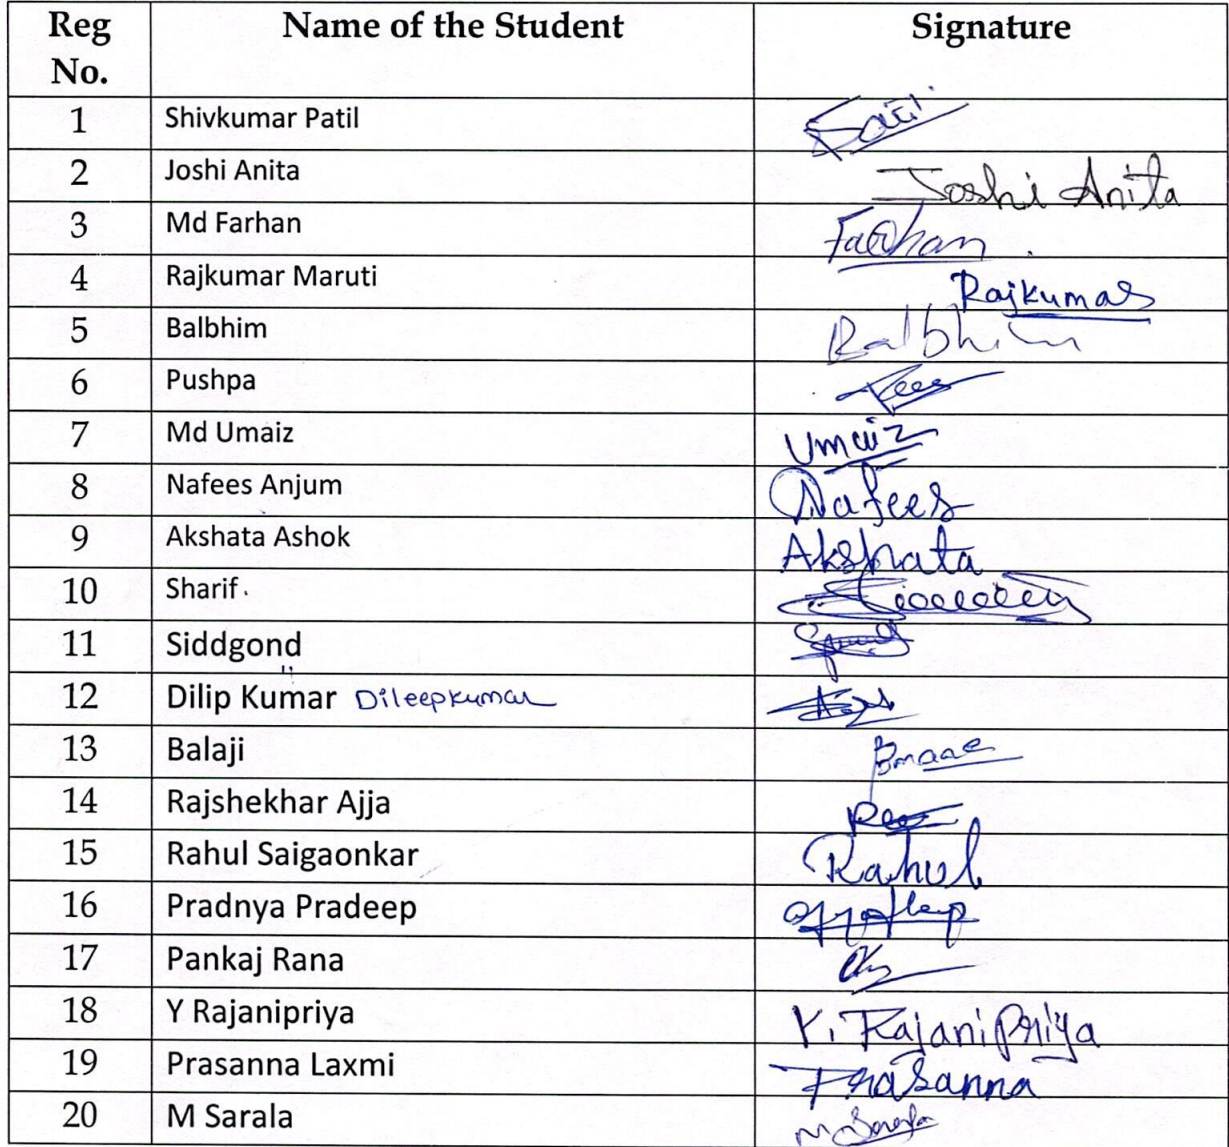 Reg No. Name of the Student Signature
1 Shivkumar Patil
2 Joshi Anita Joshi Anita
3 Md Farhan Farhan
4 Rajkumar Maruti Rajkumar
5 Balbhim Balbhim
6 Pushpa
7 Md Umaiz Umaiz
8 Nafees Anjum Nafees
9 Akshata Ashok Akshata
10 Sharif.
11 Siddgond
12 Dilip Kumar Dileepkumar
13 Balaji
14 Rajshekhar Ajja
15 Rahul Saigaonkar Rahul
16 Pradnya Pradeep
17 Pankaj Rana
18 Y Rajanipriya Y. Rajanipriya
19 Prasanna Laxmi Prasanna
20 M Sarala M Sarala